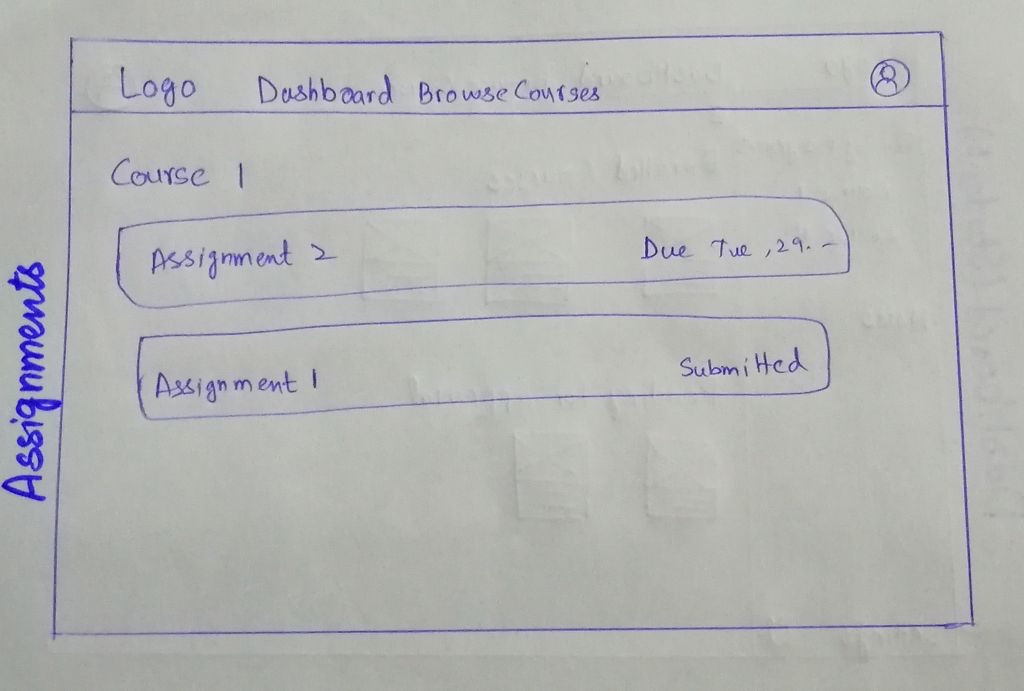 Logo Dashboard Browse Courses
Course 1
Assignment 2 Due Tue, 29. -
Assignment 1 Submitted
Assignments